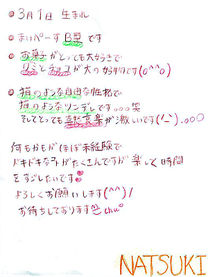 ●3月1日 生まれ
●まいぺーす B型 です
●お菓子がとっても大好きで
グミとチョコが大の好物です(o^^o)
●猫のような自由な性格で
猫のようなツンデレです...笑
そしてとっても喜怒哀楽が激しいです(´-`).。oO
何もかもがほぼ未経験で
ドキドキな子がたくさんですが楽しく時間
をすごしたいです
よろしくお願いします(^^)/
お待ちしております chu
NATSUKI